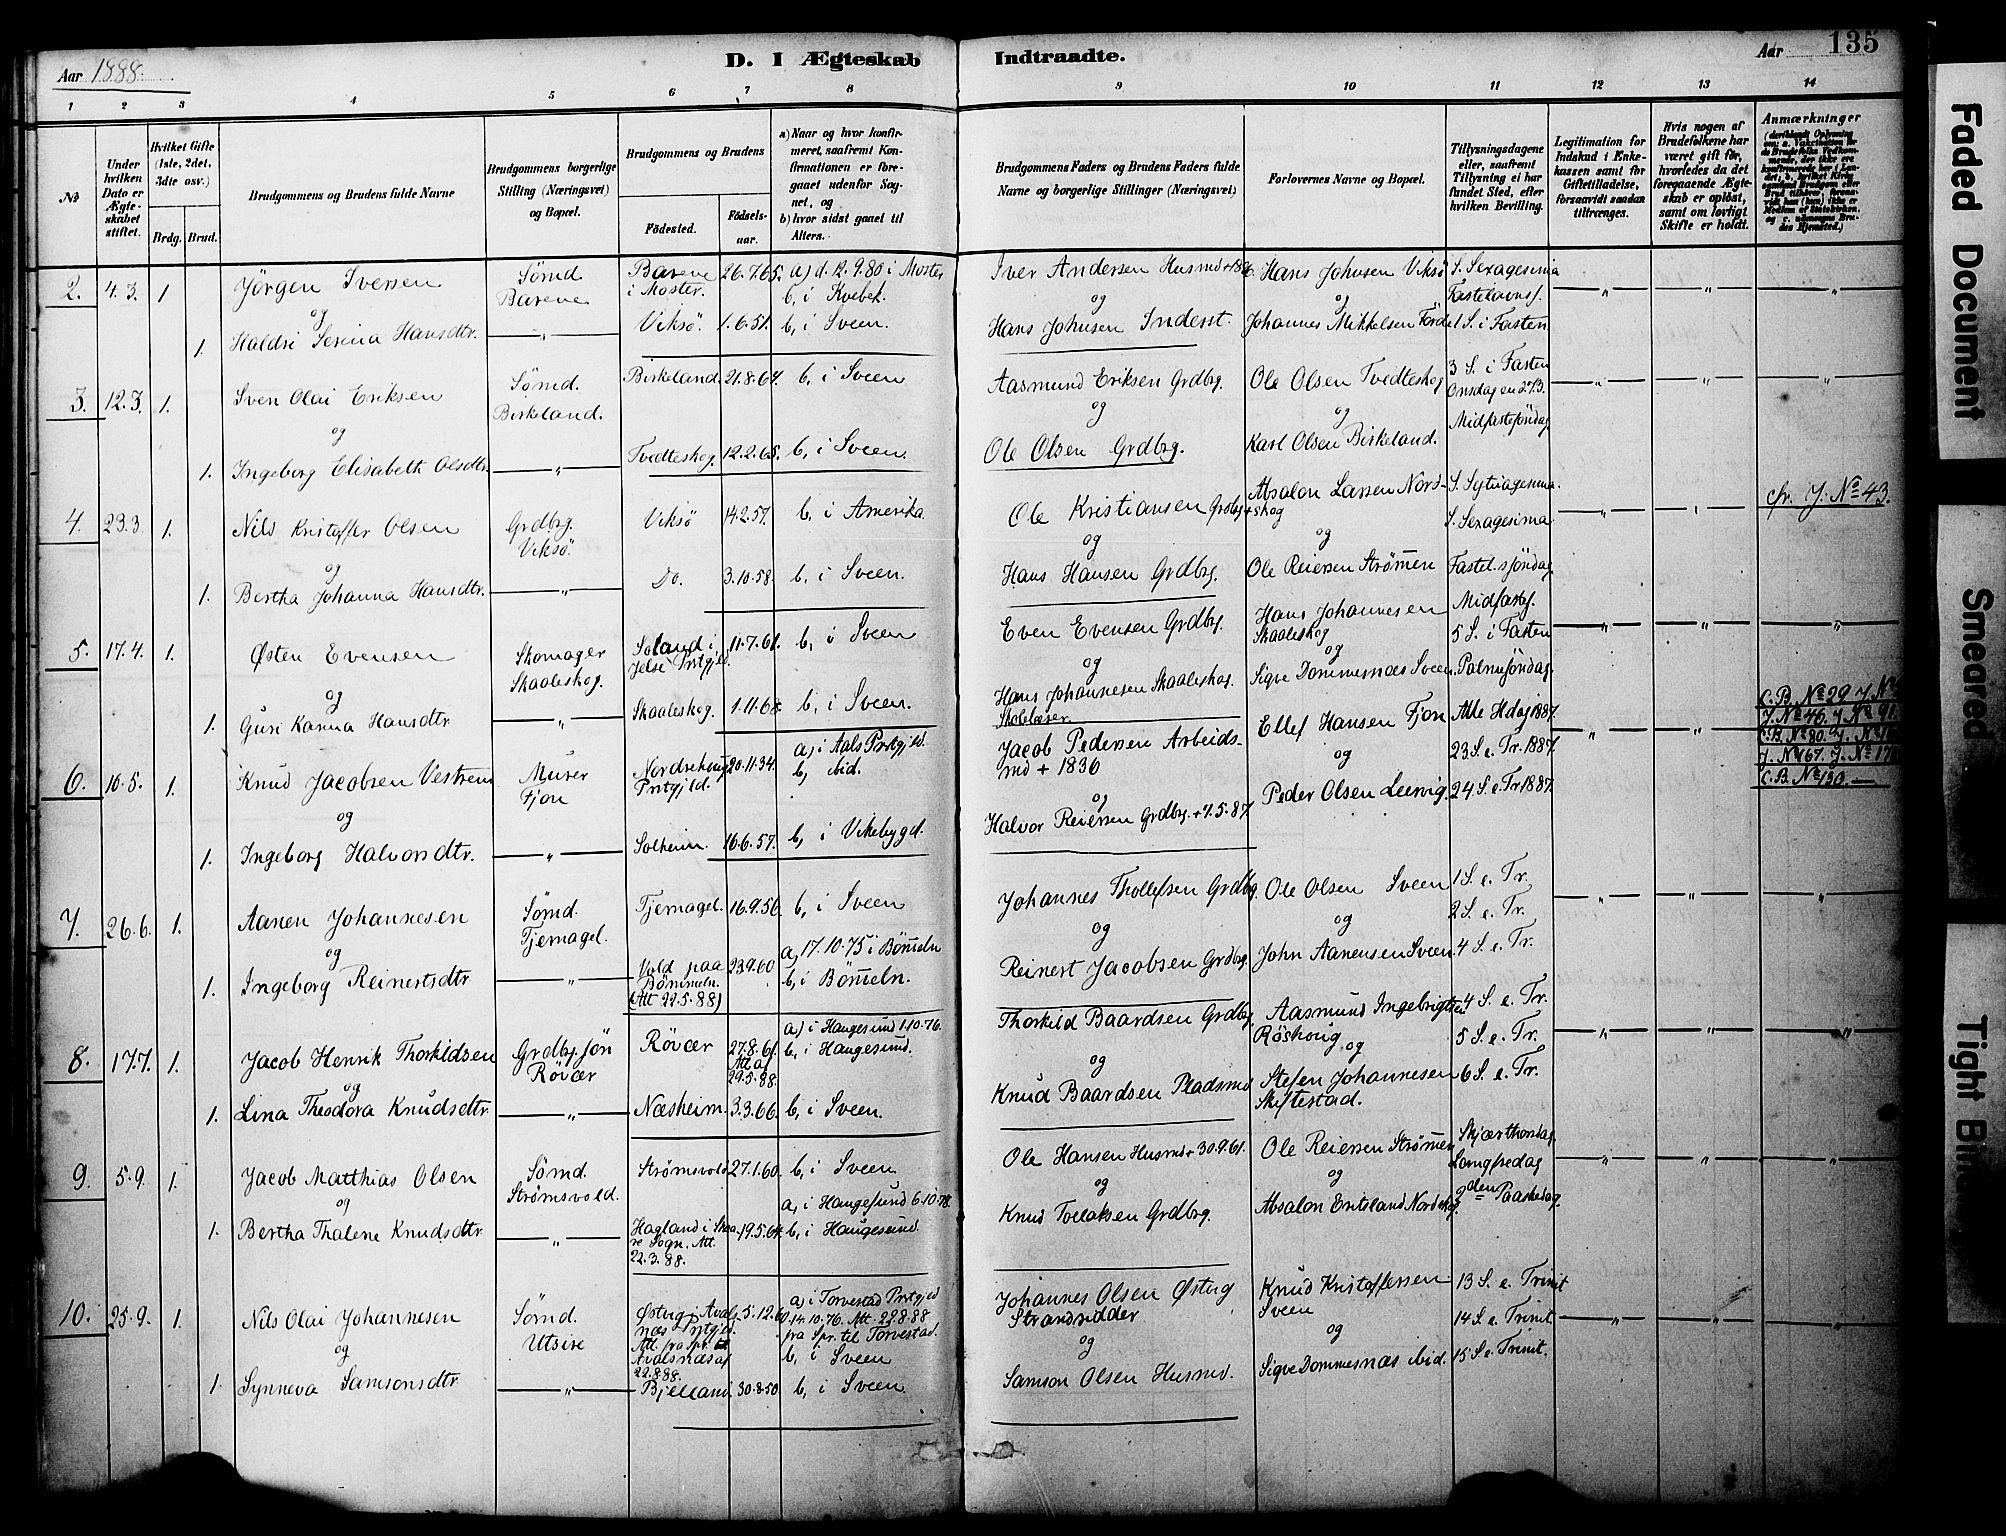 Aar 1888.
D. I Ægteskab Indtraadte.
Aar 135
1 2 3 4 5 6 7 8 9 10 11 12 13 14
No
Under hvilken Dato er Ægteskabet stiftet.
Hvilket Gifte (1ste, 2det, 3dte osv.)
Brdg. Brud.
Brudgommens og Brudens fulde Navne
Brudgommens borgerlige Stilling (Næringsvei) og Bopæl.
Brudgommens og Brudens
Födested. Födsels-aar.
a) Naar og hvor konfirmeret, saafremt Konfirmationen er foregaaet udenfor Sognet, og
b) hvor sidst gaaet til Alters.
Brudgommens Faders og Brudens Faders fulde Navne og borgerlige Stillinger (Næringsvei)
Forlovernes Navne og Bopæl.
Tillysningsdagene eller, saafremt Tillysning ei har fundet Sted, efter hvilken Bevilling.
Legitimation for Indskud i Enkekassen samt for Giftetilladelse, forsaavidt saadan tiltrænges.
Hvis nogen af Brudefolkene har været gift för, hvorledes da det foregaaende Ægteskab er oplöst, samt om lovligt Skifte er holdt.
Anmærkninger
2. 4.3. 1 Jörgen Iversen Sømd Barene Barene i Moster. 26.7.65. a) d. 12.9.80 i Moster b, i Kvebek. Iver Andersen Husmd Hans Johnsen Viksö S. Sexagesima
og Fastelavnss.
1. Haldri Serina Hansdtr. — " — Viksö. 1.6.51. b, i Sveen. Hans Johnsen Inderst. Johannes Mikkelsen Förde 1 S. i Fasten
3. 12.3. 1. Sven Olai Eriksen Sømd. Birkeland. Birkeland. 21.8.64. b, i Sveen Aasmund Eriksen Grdbrg. Ole Olsen Tvedteskog 3 S. i Fasten
og Onsdagen 27/3.
Midfastesöndag
1. Ingeborg Elisabeth Olsdtr. — " — Tvedteskog. 12.2.65. b, i Sveen. Ole Olsen Grdbrg. Karl Olsen Birkeland.
4. 23.3. 1. Nils Kristoffer Olsen Grdbrg. Viksö. Viksö 14.2.57. b, i Amerika. Ole Kristiansen Grdbrg+ Absalon Larsen Nordskog S. Septuagesima. cfr. J. No 43.
og S. Sexagesima
1. Bertha Johanna Hansdtr. — " — Do. 3.10.58. b, i Sveen. Hans Hansen Grdbrg. Ole Reiersen Strömen Fastel.söndag
5. 17.4. 1. Østen Evensen Skomager Skaaleskog. Soland i Jelse Prstgjld. 11.7.61. b, i Sveen Even Evensen Grdbrg. Hans Johannesen Skaaleskog Midfastes.
og 5 S. i Fasten
1. Guri Karina Hansdtr — " — Skaaleskog. 1.11.68. b, i Sveen. Hans Johannesen Skaaleskog Skolelærer. Sigve Dommesnæs Sveen. Palmesöndag
6. 10.5. 1. Knud Jacobsen Vestrem Murer Fjon Prstgjld. 20.11.34. a, i Aals Prstgjld. b, ibid. Jacob Pedersen Arbeidsmd + 1836 Ellef Hansen Fjon Alle H.dag 1887.
og 23 S. e. Tr. 1887.
1. Ingeborg Halvorsdtr. — " — Solheim. 16.6.57. b, i Vikebygd. Halvor Reiersen Grdbrg. + 7.5.87. Peder Olsen Leervig. 24 S. e. Tr 1887.
C. B. No 29. J. No
J. No 46. J. No 91
C. B. No 80. J. No
J. No 167. J. No
C. B. No 130. —
7. 26.6. 1. Aanen Johannesen Sømd. Tjernagel. Tjernagel. 16.9.56. b, i Sveen Johannes Thollefsen Grdbrg. Ole Olsen Sveen 1 S. e. Tr.
og 2 S. e. Tr.
1. Ingeborg Reinertsdtr — " — Vold paa Bömmeln. (Att 22.5.88) 23.9.60 a, 17.10.75 i Bömeln b, i Bömeln. Reinert Jacobsen Grdbrg. John Aanensen Sveen. 4 S. e. Tr.
8. 17.7. 1. Jacob Henrik Thorkildsen Grdbr. sön Rövær Rövær 27.8.61. Att af 29.5.88. a) i Haugesund 1.10.76. b, i Haugesund. Thorkild Baardsen Grdbrg Aasmund Ingebrigtsen Röskong 4 S. e. Tr.
og 5 S. e. Tr.
1. Lina Theodora Knudsdtr — " — Næsheim. 3.3.66. b, i Sveen. Knud Baardsen Pladsmd Stefen Johannesen Skiftestad. 6 S. e. Tr.
9. 5.9. 1. Jacob Matthias Olsen Sømd. Strømsvold. Strömsvold 27.1.60. b, i Sveen Ole Hansen Husmd + 30.9.61. Ole Reiersen Strömen Skjærthorsdag
og Langfredag
1. Bertha Thalene Knudsdtr — " — Hagland i Skaare Sogn. Att. 22.3.88. 19.5.64. a, i Haugesund 6.10.78. b, i Haugesund. Knud Tollaksen Grdbrg. Absalon Eriksland Nordskog. 2den Paaskedag.
10. 25.9. 1. Nils Olai Johannesen Sømd. Utsire Østvig i Avaldsnæs Prstgjld. Att. fra Spr. til Avalsnæs af 22.8.88. 5.12.61 a) i Torvestad Prstgjeld d. 14.10.76. Att. 22.8.88 fra Spr. til Torvestad. b, i Sveen Johannes Olsen Østvig Strandsidder Knud Kristoffersen Sveen 13 S. e. Trinit
og 14 S. e. Trinit
1. Synneva Samsonsdtr — " — Bjelland. 30.8.50 b, i Sveen Samson Olsen Husmd. Sigve Dommesnæs ibid. 15 S. e. Trinit.
Faded Document
Smeared
Tight Bin